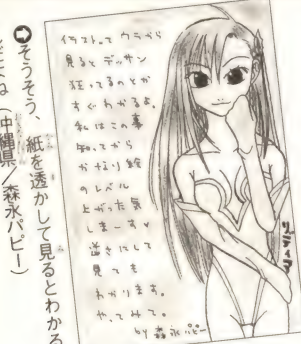 イラストって ウラから
見ると デッサン
狂ってるのとか
すぐわかるよ。
私はこの事
知ってから
かなり絵
のレベル
上がった気
しまーす♥
逆さにして
見ても
わかります。
やってみて。
by 森永パピー
リディア
➲そうそう、紙を透かして見るとわかる
だよね(沖縄県/森永パピー)